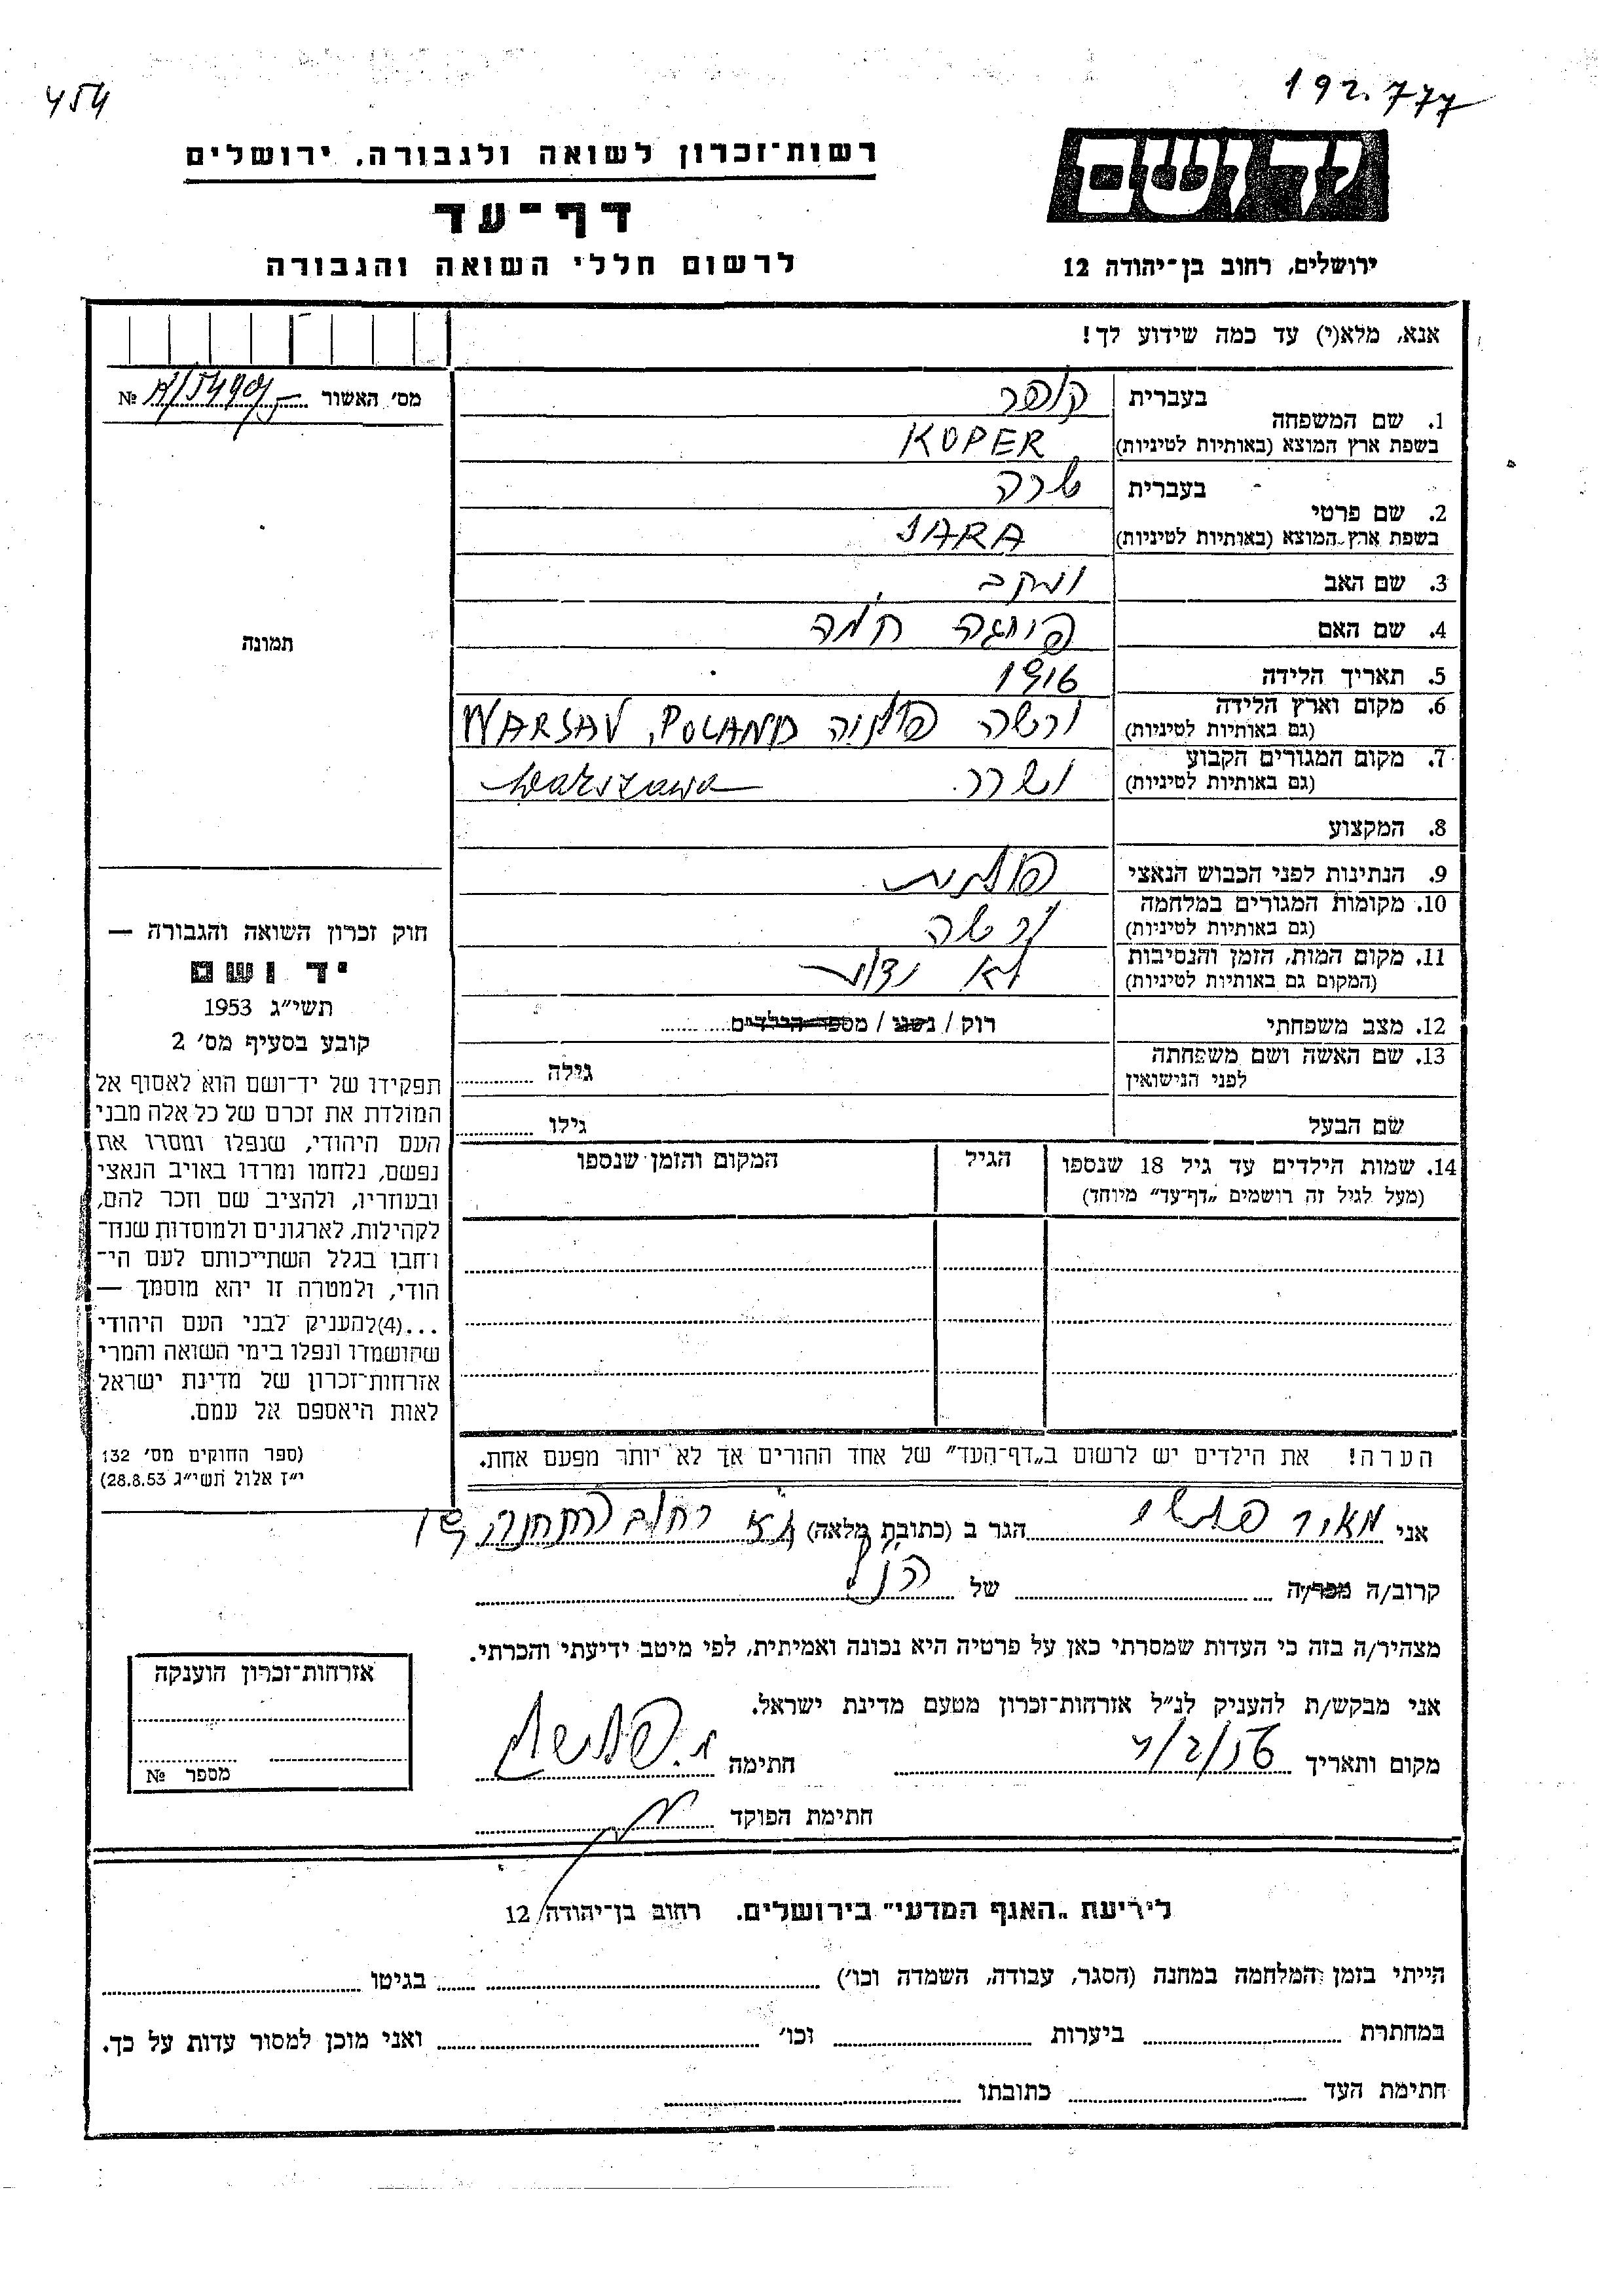 454
192.777
יד ושם
רשות־זכרון לשואה ולגבורה, ירושלים
דף־עד
לרשום חללי השואה והגבורה
ירושלים, רחוב בן־יהודה 12
אנא, מלא(י) עד כמה שידוע לך!
מס׳ האשור №
1. שם המשפחה בעברית קופר
בשפת ארץ המוצא (באותיות לטיניות) KOPER
2. שם פרטי בעברית שרה
בשפת ארץ המוצא (באותיות לטיניות) SARA
3. שם האב יעקב
4. שם האם פייגה
5. תאריך הלידה 1916
6. מקום וארץ הלידה (גם באותיות לטיניות) ורשה פולניה WARSAV, POLAND
7. מקום המגורים הקבוע (גם באותיות לטיניות) Warszawa
8. המקצוע
9. הנתינות לפני הכבוש הנאצי פולנית
10. מקומות המגורים במלחמה (גם באותיות לטיניות) ורשה
11. מקום המות, הזמן והנסיבות (המקום גם באותיות לטיניות) לא ידוע
12. מצב משפחתי רוק / נשוי / מספר הילדים
13. שם האשה ושם משפחתה לפני הנישואין גילה
שם הבעל גילו
14. שמות הילדים עד גיל 18 שנספו (מעל לגיל זה רושמים „דף־עד״ מיוחד) הגיל המקום והזמן שנספו
הערה! את הילדים יש לרשום ב„דף־העד״ של אחד ההורים אך לא יותר מפעם אחת.
תמונה
חוק זכרון השואה והגבורה —
יד ושם
תשי״ג 1953
קובע בסעיף מס׳ 2
תפקידו של יד־ושם הוא לאסוף אל
המולדת את זכרם של כל אלה מבני
העם היהודי, שנפלו ומסרו את
נפשם, נלחמו ומרדו באויב הנאצי
ובעוזריו, ולהציב שם וזכר להם,
לקהילות, לארגונים ולמוסדות שנח־
רבו בגלל השתייכותם לעם הי־
הודי, ולמטרה זו יהא מוסמך —
...(4)להעניק לבני העם היהודי
שהושמדו ונפלו בימי השואה והמרי
אזרחות־זכרון של מדינת ישראל
לאות היאספם אל עמם.
(ספר החוקים מס׳ 132
י״ז אלול תשי״ג 28.8.53)
אני מאיר הגר ב (כתובת מלאה) ת״א רחוב
קרוב/ה מכר/ה של הנ״ל
מצהיר/ה בזה כי העדות שמסרתי כאן על פרטיה היא נכונה ואמיתית, לפי מיטב ידיעתי והכרתי.
אני מבקש/ת להעניק לנ״ל אזרחות־זכרון מטעם מדינת ישראל.
מקום ותאריך 4/2/56 חתימה
חתימת הפוקד
אזרחות־זכרון הוענקה
מספר №
לידיעת „האגף המדעי״ בירושלים. רחוב בן־יהודה 12
הייתי בזמן המלחמה במחנה (הסגר, עבודה, השמדה וכו׳) בגיטו
במחתרת ביערות וכו׳ ואני מוכן למסור עדות על כך.
חתימת העד כתובתו